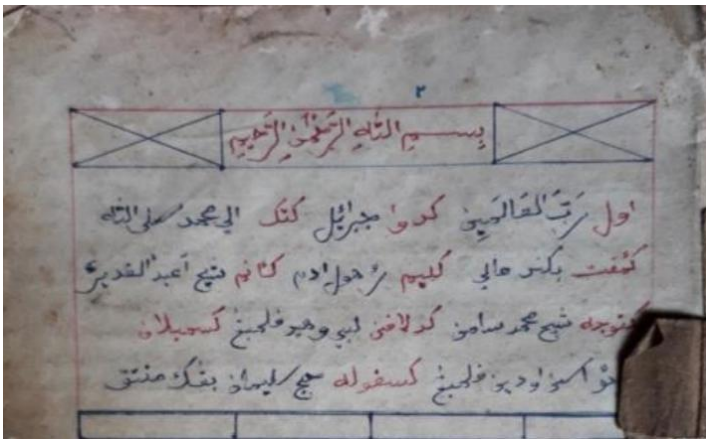 ٢
بِسْمِ اللّٰهِ الرَّحْمٰنِ الرَّحِيمِ
اول رَبَّ العَالَمِينَ كدوا جبرائل كتݢ الي محمد صلى الله
كئمفت بكندا عالي كليم رحول ادم كأنم شيخ اعبد القدير
كتوجه شيخ محمد سامن كدلافن لبي وهير فلمبڠ كسمبيلان
اودين فلمبڠ كسفوله حج سليمان بڠك منتق